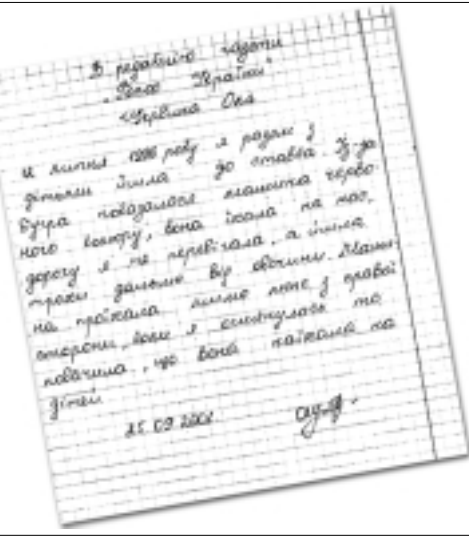 В редакцію газети
"Голос України"
Червина Оля
11 липня 1998 року я разом з
дітьми йшла до ставка. Із-за
бугра показалася машина черво-
ного кольору, вона їхала на нас,
дорогу я не перебігала, а йшла
трохи дальше від обочини. Маши-
на проїхала мимо мене з правої
сторони, коли я оглянулась то
побачила, що вона наїхала на
дітей
25.09.2002